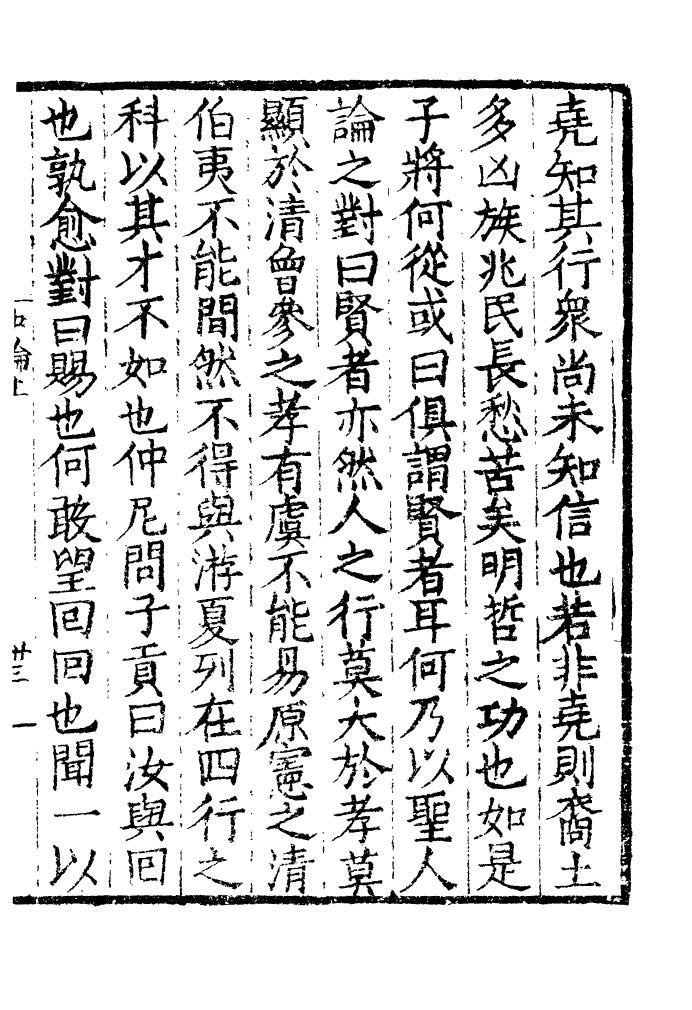 堯知其行衆尚未知信也若非堯則裔土
多凶族兆民長愁苦矣明哲之功也如是
子將何從或曰俱謂賢者耳何乃以聖人
論之對曰賢者亦然人之行莫大於孝莫
顯於清曾參之孝有虞不能易原憲之清
伯夷不能間然不得與游夏列在四行之
科以其才不如也仲尼問子貢曰汝與回
也孰愈對曰賜也何敢望回回也聞一以
論上
廿三